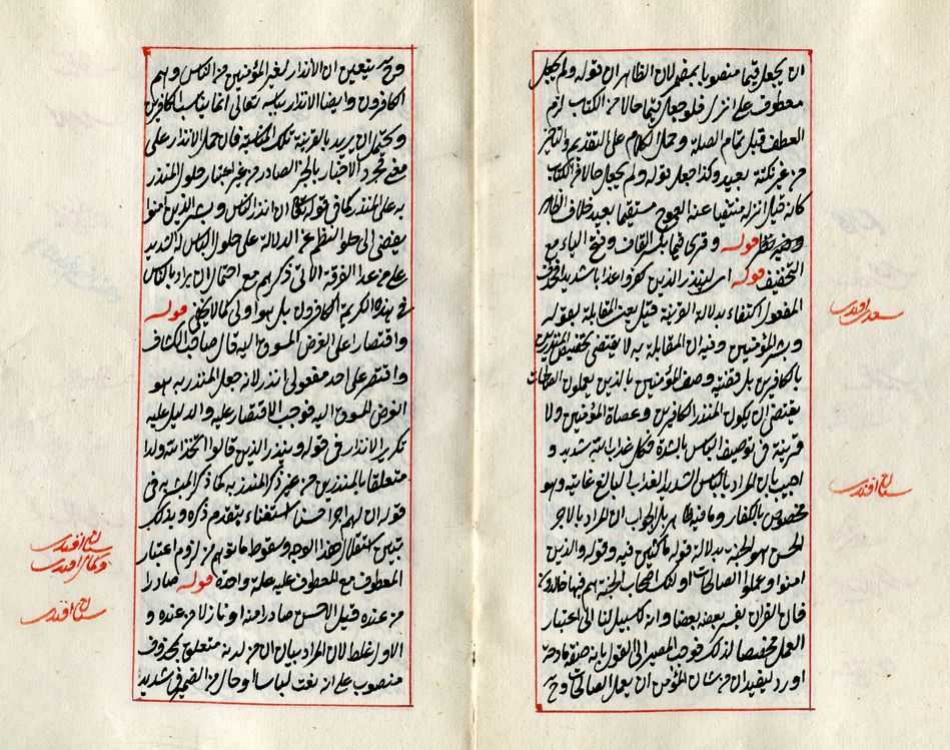 ان يجعل قيما منصوبا بمضمر لان الظاهر ان قوله ولم يجعل
معطوف على انزل فلو جعل قيما حالا من الكتاب لزم
العطف قبل تمام الصلة وحمل الكلام على التقديم والتأخير
من غير نكتة بعيد وكذا جعل قوله ولم يجعل حالا من الكتاب
كانه قيل انزله منتفيا عنه العوج مستقيما بعيد خلاف الظاهر
قوله وقرئ قيما بكسر القاف وفتح الياء مع
التخفيف قوله اي لينذر الذين كفروا عذابا شديدا فحذف
المفعول اكتفاء بدلالة القرينة قيل يعني المقابلة بقوله
ويبشر المؤمنين وفيه ان المقابلة به لا يقتضي تخصيص المنذرين
بالكافرين بل قضية وصف المؤمنين بالذين يعملون الصالحات
يقتضي ان يكون المنذر الكافرين وعصاة المؤمنين ولا
قرينة في توصيف الباس بالشدة فكل عذاب الله شديد و
اجيب بان المراد بالباس الشديد العذاب البالغ غايته وهو
مخصوص بالكفار وما فيه ظاهر بل الجواب ان المراد بالاجر
الحسن هو الجنة بدلالة قوله ماكثين فيه وقوله والذين
امنوا وعملوا الصالحات اولئك اصحاب الجنة هم فيها خالدون
فان القران يفسر بعضه بعضا وانه لا سبيل لنا الى اعتبار
العمل مخصصا لذلك فوجب المصير الى القول بانه صفة مادحة
اورد ليفيد ان من شان المؤمن ان يعمل الصالحات وح
سعدي افندي
سنان افندي
وح يتعين ان الانذار لغير المؤمنين من الناس وهم
الكافرون وايضا الانذار بباسه تعالى انما يناسب الكافرين
ويحتمل ان يريد بالقرينة تلك فان حمل الانذار على
معنى مجرد الاخبار بالخبر الصادر من غير اعتبار حلول المنذر
به على المنذر كما في قوله ان انذر الناس وبشر الذين امنوا
يفضي الى خلو النظم عن الدلالة على حلول الباس الشديد
على من عدا الفرقة الاتي ذكرهم مع احتمال ان يراد بالناس
في هذه الكريمة الكافرون بل هو اولى كما لا يخفى قوله
واقتصارا على الغرض المسوق اليه قال صاحب الكشاف
واقتصر على احد مفعولي انذر لانه جعل المنذر به هو
الغرض المسوق اليه فوجب الاقتصار عليه والدليل عليه
تكرير الانذار في قوله وينذر الذين قالوا اتخذ الله ولدا
متعلقا بالمنذرين من غير ذكر المنذر به كما ذكر المبشر به في
قوله ان لهم اجرا حسنا استغناء بتقدم ذكره وبذلك
تبين استقلال هذا الوجه وسقوط ما توهم من لزوم اعتبار
المعطوف مع المعطوف عليه علة واحدة قوله صادرا
من عنده قيل الاحسن صادرا منه او نازلا من عنده و
الاول غلط لان المراد بيان ان من لدنه متعلق بمحذوف
منصوب على انه نعت لباسا او حال من الضمير في شديد
سنان افندي
وكمال افندي
سنان افندي